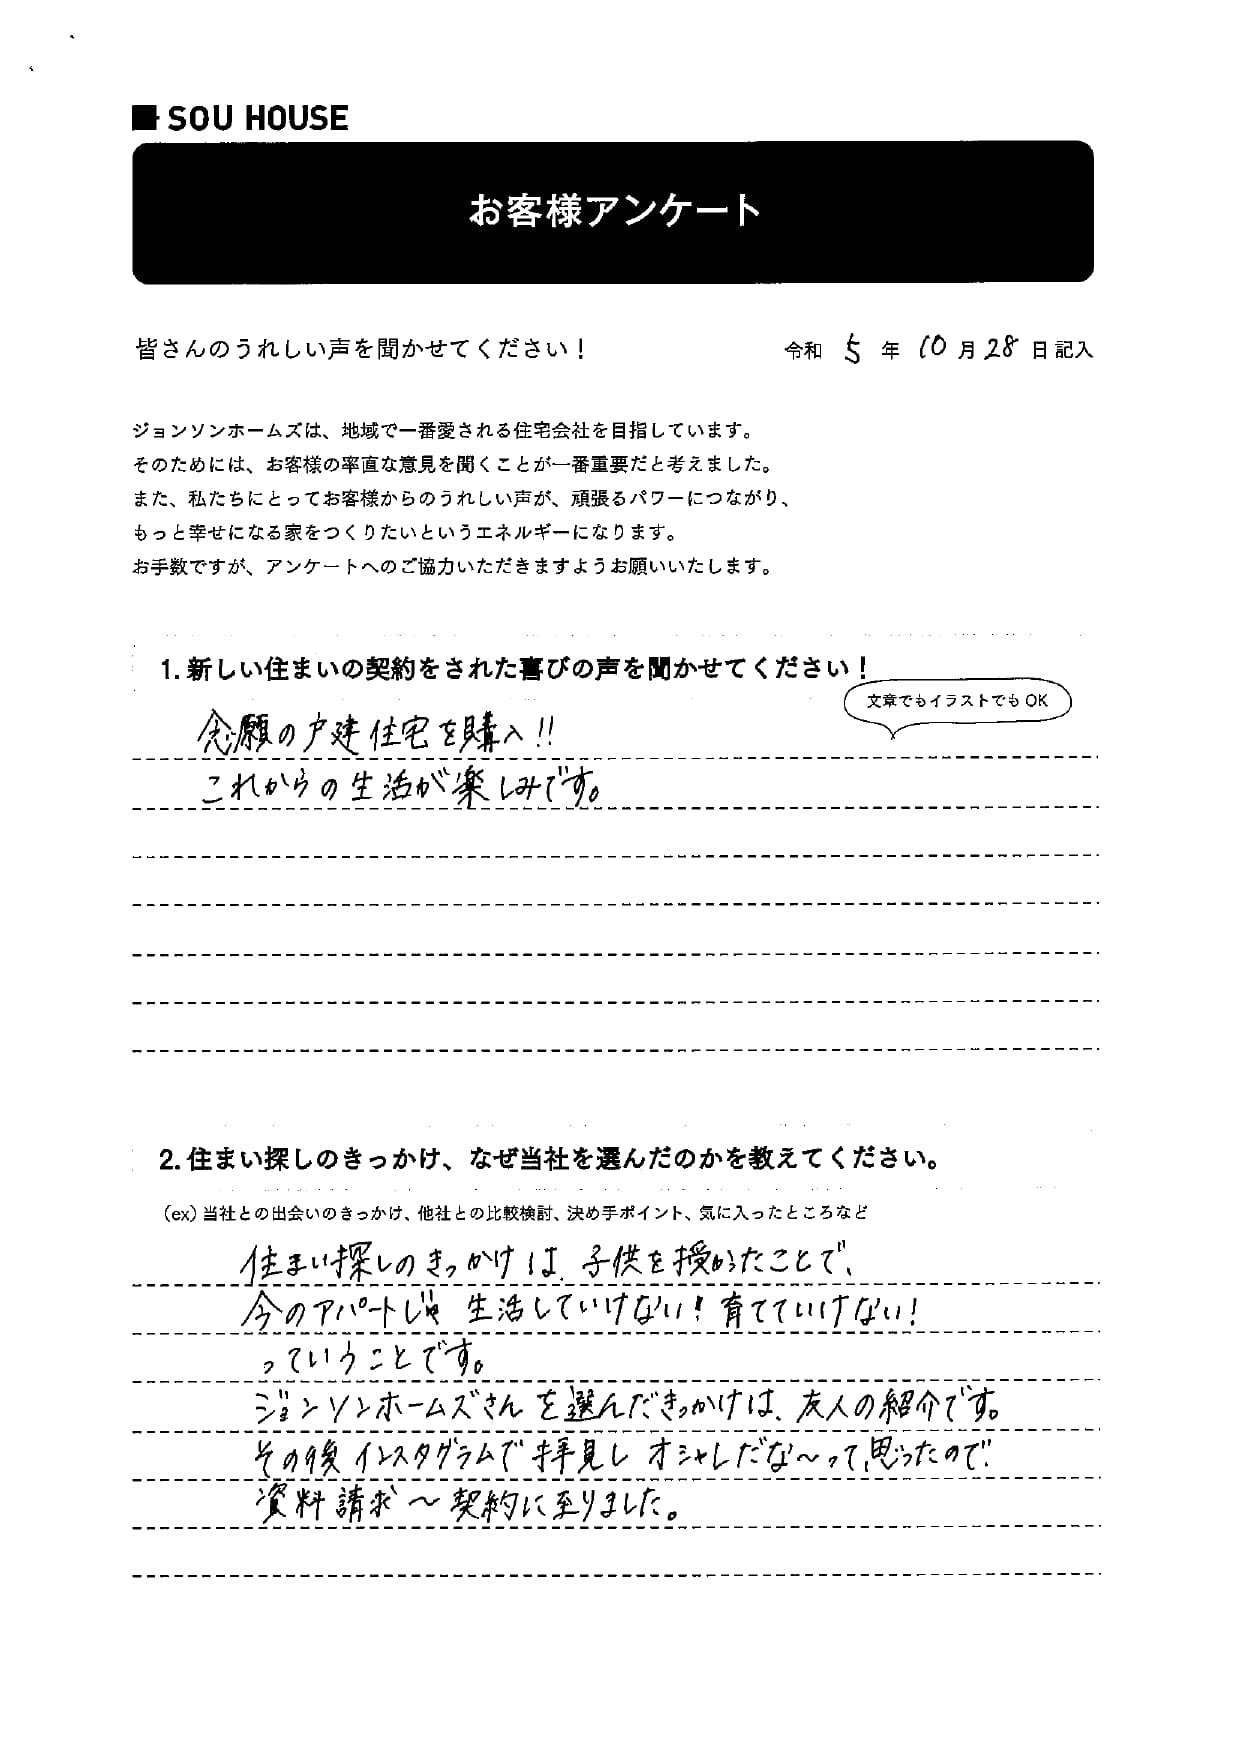 SOU HOUSE
お客様アンケート
皆さんのうれしい声を聞かせてください！
令和 5 年 10 月 28 日記入
ジョンソンホームズは、地域で一番愛される住宅会社を目指しています。
そのためには、お客様の率直な意見を聞くことが一番重要だと考えました。
また、私たちにとってお客様からのうれしい声が、頑張るパワーにつながり、
もっと幸せになる家をつくりたいというエネルギーになります。
お手数ですが、アンケートへのご協力いただきますようお願いいたします。
1. 新しい住まいの契約をされた喜びの声を聞かせてください！
文章でもイラストでも OK
念願の戸建住宅を購入!!
これからの生活が楽しみです。
2. 住まい探しのきっかけ、なぜ当社を選んだのかを教えてください。
（ex）当社との出会いのきっかけ、他社との比較検討、決め手ポイント、気に入ったところなど
住まい探しのきっかけは、子供を授かったことで、
今のアパートじゃ 生活していけない！育てていけない！
っていうことです。
ジョンソンホームズさんを選んだきっかけは、友人の紹介です。
その後インスタグラムで拝見しオシャレだな〜って思ったので
資料請求〜契約に至りました。